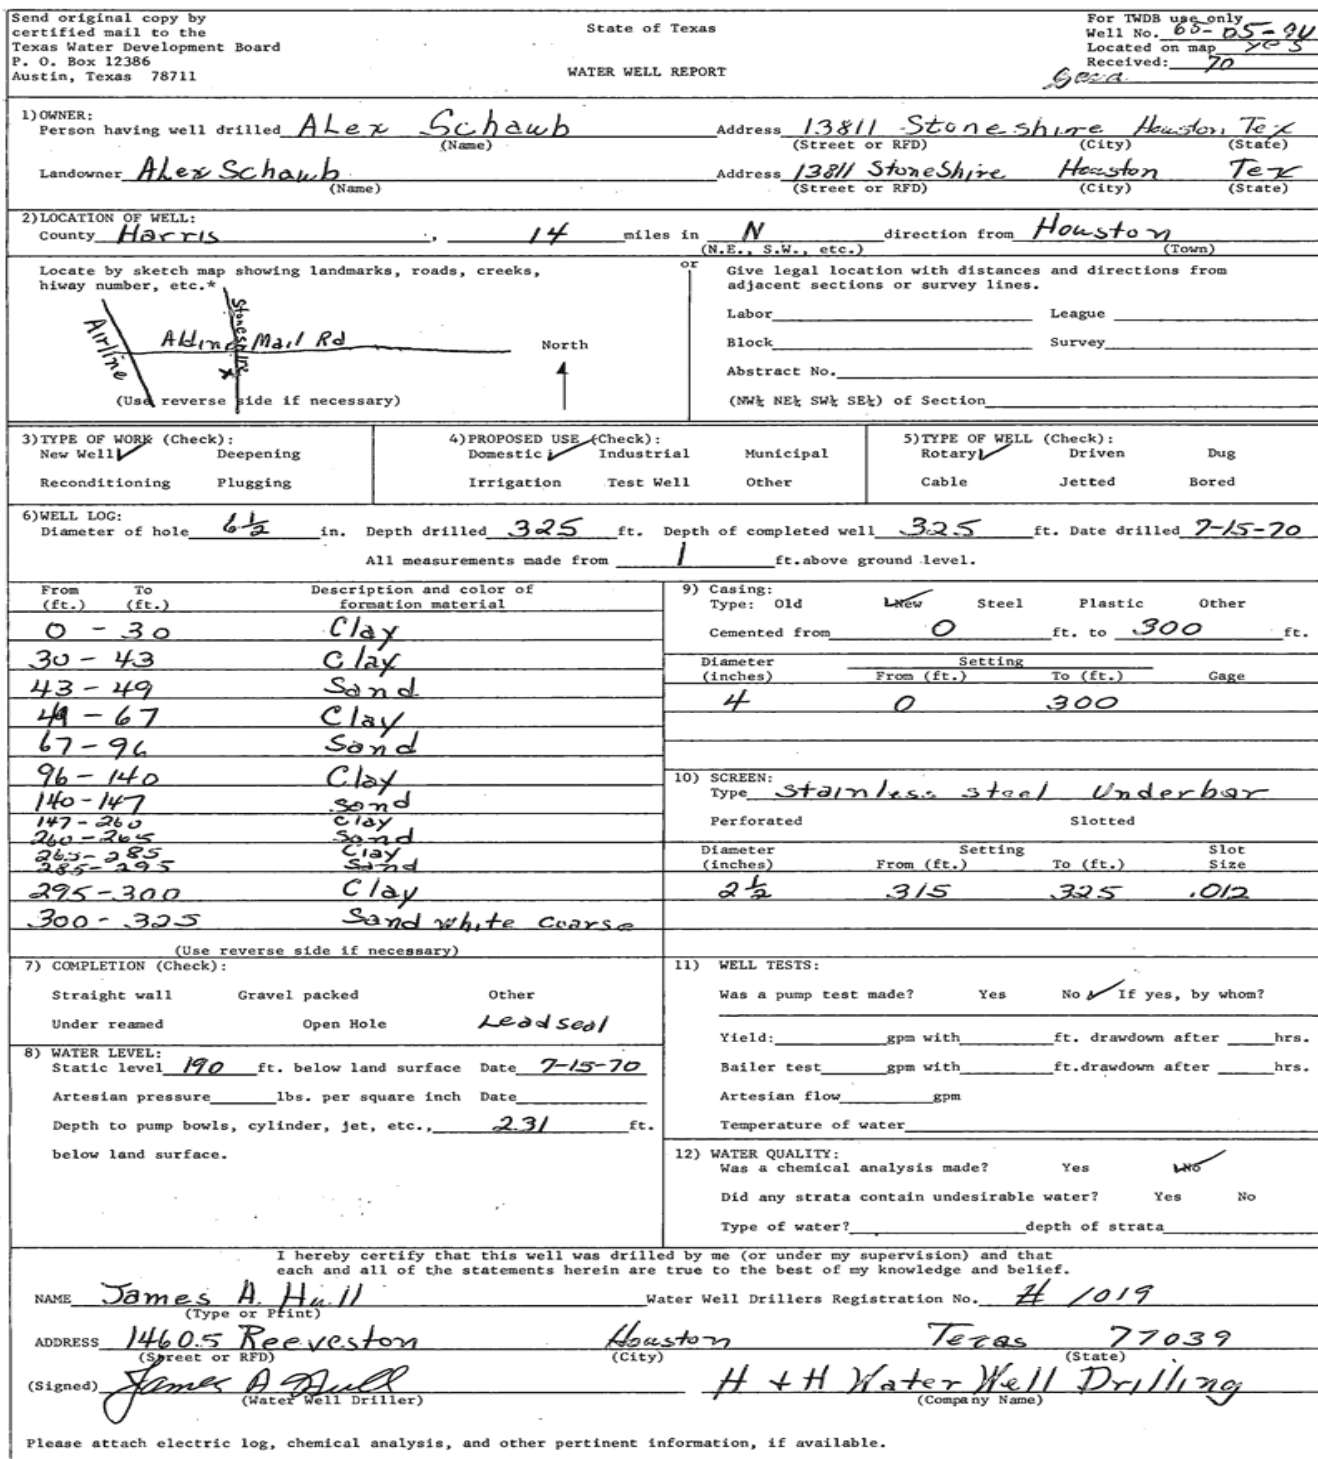 Send original copy by
certified mail to the
Texas Water Development Board
P. O. Box 12386
Austin, Texas 78711
State of Texas
WATER WELL REPORT
For TWDB use only
Well No. 65-05-
Located on map yes
Received: 70
1)OWNER:
Person having well drilled Alex Schawb Address 13811 Stoneshire Houston Tex
(Name) (Street or RFD) (City) (State)
Landowner Alex Schawb Address 13811 StoneShire Houston Tex
(Name) (Street or RFD) (City) (State)
2)LOCATION OF WELL:
County Harris, 14 miles in N direction from Houston
(N.E., S.W., etc.) (Town)
Locate by sketch map showing landmarks, roads, creeks,
hiway number, etc.*
Airline
Stoneshire
Aldine Mail Rd
X
North
(Use reverse side if necessary)
or
Give legal location with distances and directions from
adjacent sections or survey lines.
Labor League
Block Survey
Abstract No.
(NW¼ NE¼ SW¼ SE¼) of Section
3)TYPE OF WORK (Check):
New Well ✓ Deepening
Reconditioning Plugging
4)PROPOSED USE (Check):
Domestic ✓ Industrial Municipal
Irrigation Test Well Other
5)TYPE OF WELL (Check):
Rotary ✓ Driven Dug
Cable Jetted Bored
6)WELL LOG:
Diameter of hole 6½ in. Depth drilled 325 ft. Depth of completed well 325 ft. Date drilled 7-15-70
All measurements made from 1 ft.above ground level.
From To Description and color of
(ft.) (ft.) formation material
0 - 30 Clay
30 - 43 Clay
43 - 49 Sand
49 - 67 Clay
67 - 96 Sand
96 - 140 Clay
140 - 147 Sand
147 - 260 Clay
260 - 265 Sand
265 - 285 Clay
285 - 295 Sand
295 - 300 Clay
300 - 325 Sand white coarse
(Use reverse side if necessary)
9) Casing:
Type: Old ✓New Steel Plastic Other
Cemented from 0 ft. to 300 ft.
Diameter Setting
(inches) From (ft.) To (ft.) Gage
4 0 300
10) SCREEN:
Type Stainless steel Underbar
Perforated Slotted
Diameter Setting Slot
(inches) From (ft.) To (ft.) Size
2½ 315 325 .012
7) COMPLETION (Check):
Straight wall Gravel packed Other
Under reamed Open Hole Lead seal
8) WATER LEVEL:
Static level 190 ft. below land surface Date 7-15-70
Artesian pressure lbs. per square inch Date
Depth to pump bowls, cylinder, jet, etc., 231 ft.
below land surface.
11) WELL TESTS:
Was a pump test made? Yes No ✓ If yes, by whom?
Yield: gpm with ft. drawdown after hrs.
Bailer test gpm with ft.drawdown after hrs.
Artesian flow gpm
Temperature of water
12) WATER QUALITY:
Was a chemical analysis made? Yes ✓No
Did any strata contain undesirable water? Yes No
Type of water? depth of strata
I hereby certify that this well was drilled by me (or under my supervision) and that
each and all of the statements herein are true to the best of my knowledge and belief.
NAME James A. Hull Water Well Drillers Registration No. # 1019
(Type or Print)
ADDRESS 14605 Reeveston Houston Texas 77039
(Street or RFD) (City) (State)
(Signed) James A Hull H + H Water Well Drilling
(Water Well Driller) (Company Name)
Please attach electric log, chemical analysis, and other pertinent information, if available.